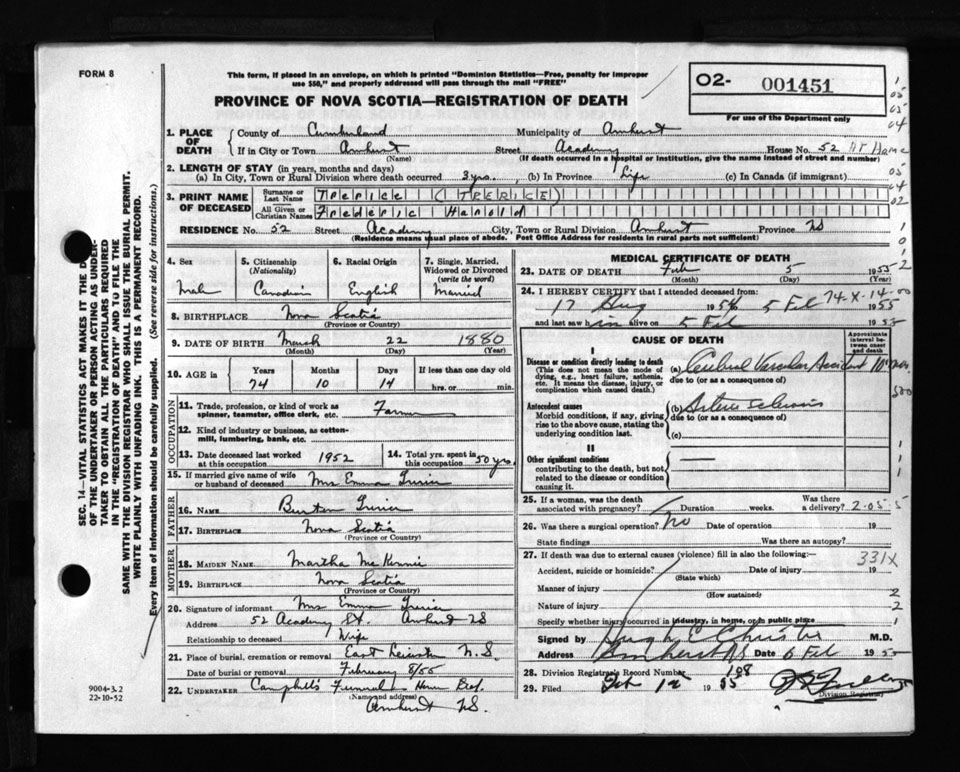 FORM 8
This form, if placed in an envelope, on which is printed "Dominion Statistics—Free, penalty for improper
use $50," and properly addressed will pass through the mail "FREE"
PROVINCE OF NOVA SCOTIA—REGISTRATION OF DEATH
O2- 001451
For use of the Department only
1. PLACE OF DEATH { County of Cumberland Municipality of Amherst
If in City or Town Amherst Street Academy House No. 52 At Home
(Name) (If death occurred in a hospital or institution, give the name instead of street and number)
2. LENGTH OF STAY (in years, months and days)
(a) In City, Town or Rural Division where death occurred 3 yrs. (b) In Province Life (c) In Canada (if immigrant)
3. PRINT NAME OF DECEASED { Surname or Last Name (TRERICE)
All Given or Christian Names Frederic Harold
RESIDENCE No. 52 Street Academy City, Town or Rural Division Amherst Province NS
(Residence means usual place of abode. Post Office Address for residents in rural parts not sufficient)
4. Sex Male
5. Citizenship (Nationality) Canadian
6. Racial Origin English
7. Single, Married, Widowed or Divorced (write the word) Married
8. BIRTHPLACE Nova Scotia
(Province or Country)
9. DATE OF BIRTH March 22 1880
(Month) (Day) (Year)
10. AGE in { Years Months Days If less than one day old
74 10 14 hrs. or min.
OCCUPATION
11. Trade, profession, or kind of work as spinner, teamster, office clerk, etc. Farmer
12. Kind of industry or business, as cotton-mill, lumbering, bank, etc.
13. Date deceased last worked at this occupation 1952
14. Total yrs. spent in this occupation 50 yrs.
15. If married give name of wife or husband of deceased Mrs Emma
FATHER
16. NAME Burton
17. BIRTHPLACE Nova Scotia
(Province or Country)
MOTHER
18. MAIDEN NAME Martha
19. BIRTHPLACE Nova Scotia
(Province or Country)
20. Signature of informant Mrs Emma
Address 52 Academy St. Amherst NS
Relationship to deceased Wife
21. Place of burial, cremation or removal East N.S.
Date of burial or removal February 8/55
22. UNDERTAKER Campbell's Funeral Home
(Name and address)
Amherst NS.
MEDICAL CERTIFICATE OF DEATH
23. DATE OF DEATH Feb 5 1955
(Month) (Day) (Year)
24. I HEREBY CERTIFY that I attended deceased from: 74-X-14-00
17 Aug 1954 5 Feb 1955
and last saw him alive on 5 Feb 1955
CAUSE OF DEATH
Approximate interval between onset and death
I
Disease or condition directly leading to death
(This does not mean the mode of dying, e.g., heart failure, asthenia, etc. It means the disease, injury, or complication which caused death.)
(a) Cerebral Vascular Accident
due to (or as a consequence of)
Antecedent causes
Morbid conditions, if any, giving rise to the above cause, stating the underlying condition last.
(b) Arterio Sclerosis
due to (or as a consequence of)
(c)
II
Other significant conditions
contributing to the death, but not related to the disease or condition causing it.
25. If a woman, was the death associated with pregnancy? Duration weeks. Was there a delivery? 2-05-5
26. Was there a surgical operation? No Date of operation 19
State findings Was there an autopsy?
27. If death was due to external causes (violence) fill in also the following:— 331X
Accident, suicide or homicide? Date of injury 19
(State which)
Manner of injury
(How sustained)
Nature of injury
Specify whether injury occurred in industry, in home, or in public place
Signed by Hugh E Christie M.D.
Address Amherst NS Date 6 Feb 1955
28. Division Registrar's Record Number 108
29. Filed Feb 12 1955
Division Registrar
SEC. 14—VITAL STATISTICS ACT MAKES IT THE
OF THE UNDERTAKER OR PERSON ACTING AS UNDER-
TAKER TO OBTAIN ALL THE PARTICULARS REQUIRED
IN THE "REGISTRATION OF DEATH" AND TO FILE THE
SAME WITH THE DIVISION REGISTRAR WHO SHALL ISSUE THE BURIAL PERMIT.
WRITE PLAINLY WITH UNFADING INK. THIS IS A PERMANENT RECORD.
Every item of information should be carefully supplied. (See reverse side for instructions.)
9004-3.2
22-10-52